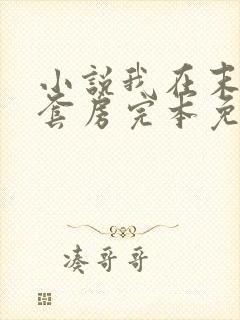 小說我在末
套房完本免
凑哥哥